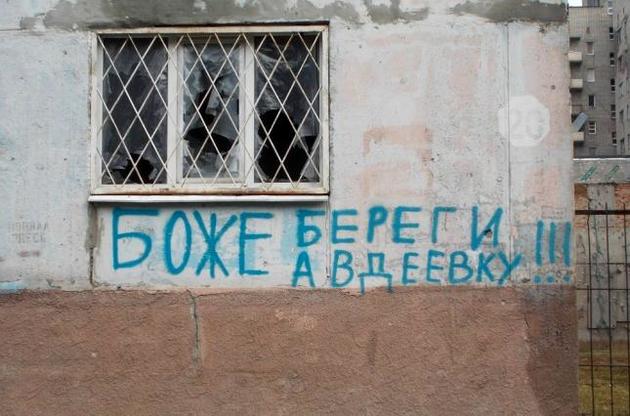 БОЖЕ БЕРЕГИ
АВДЕЕВКУ!!!
20